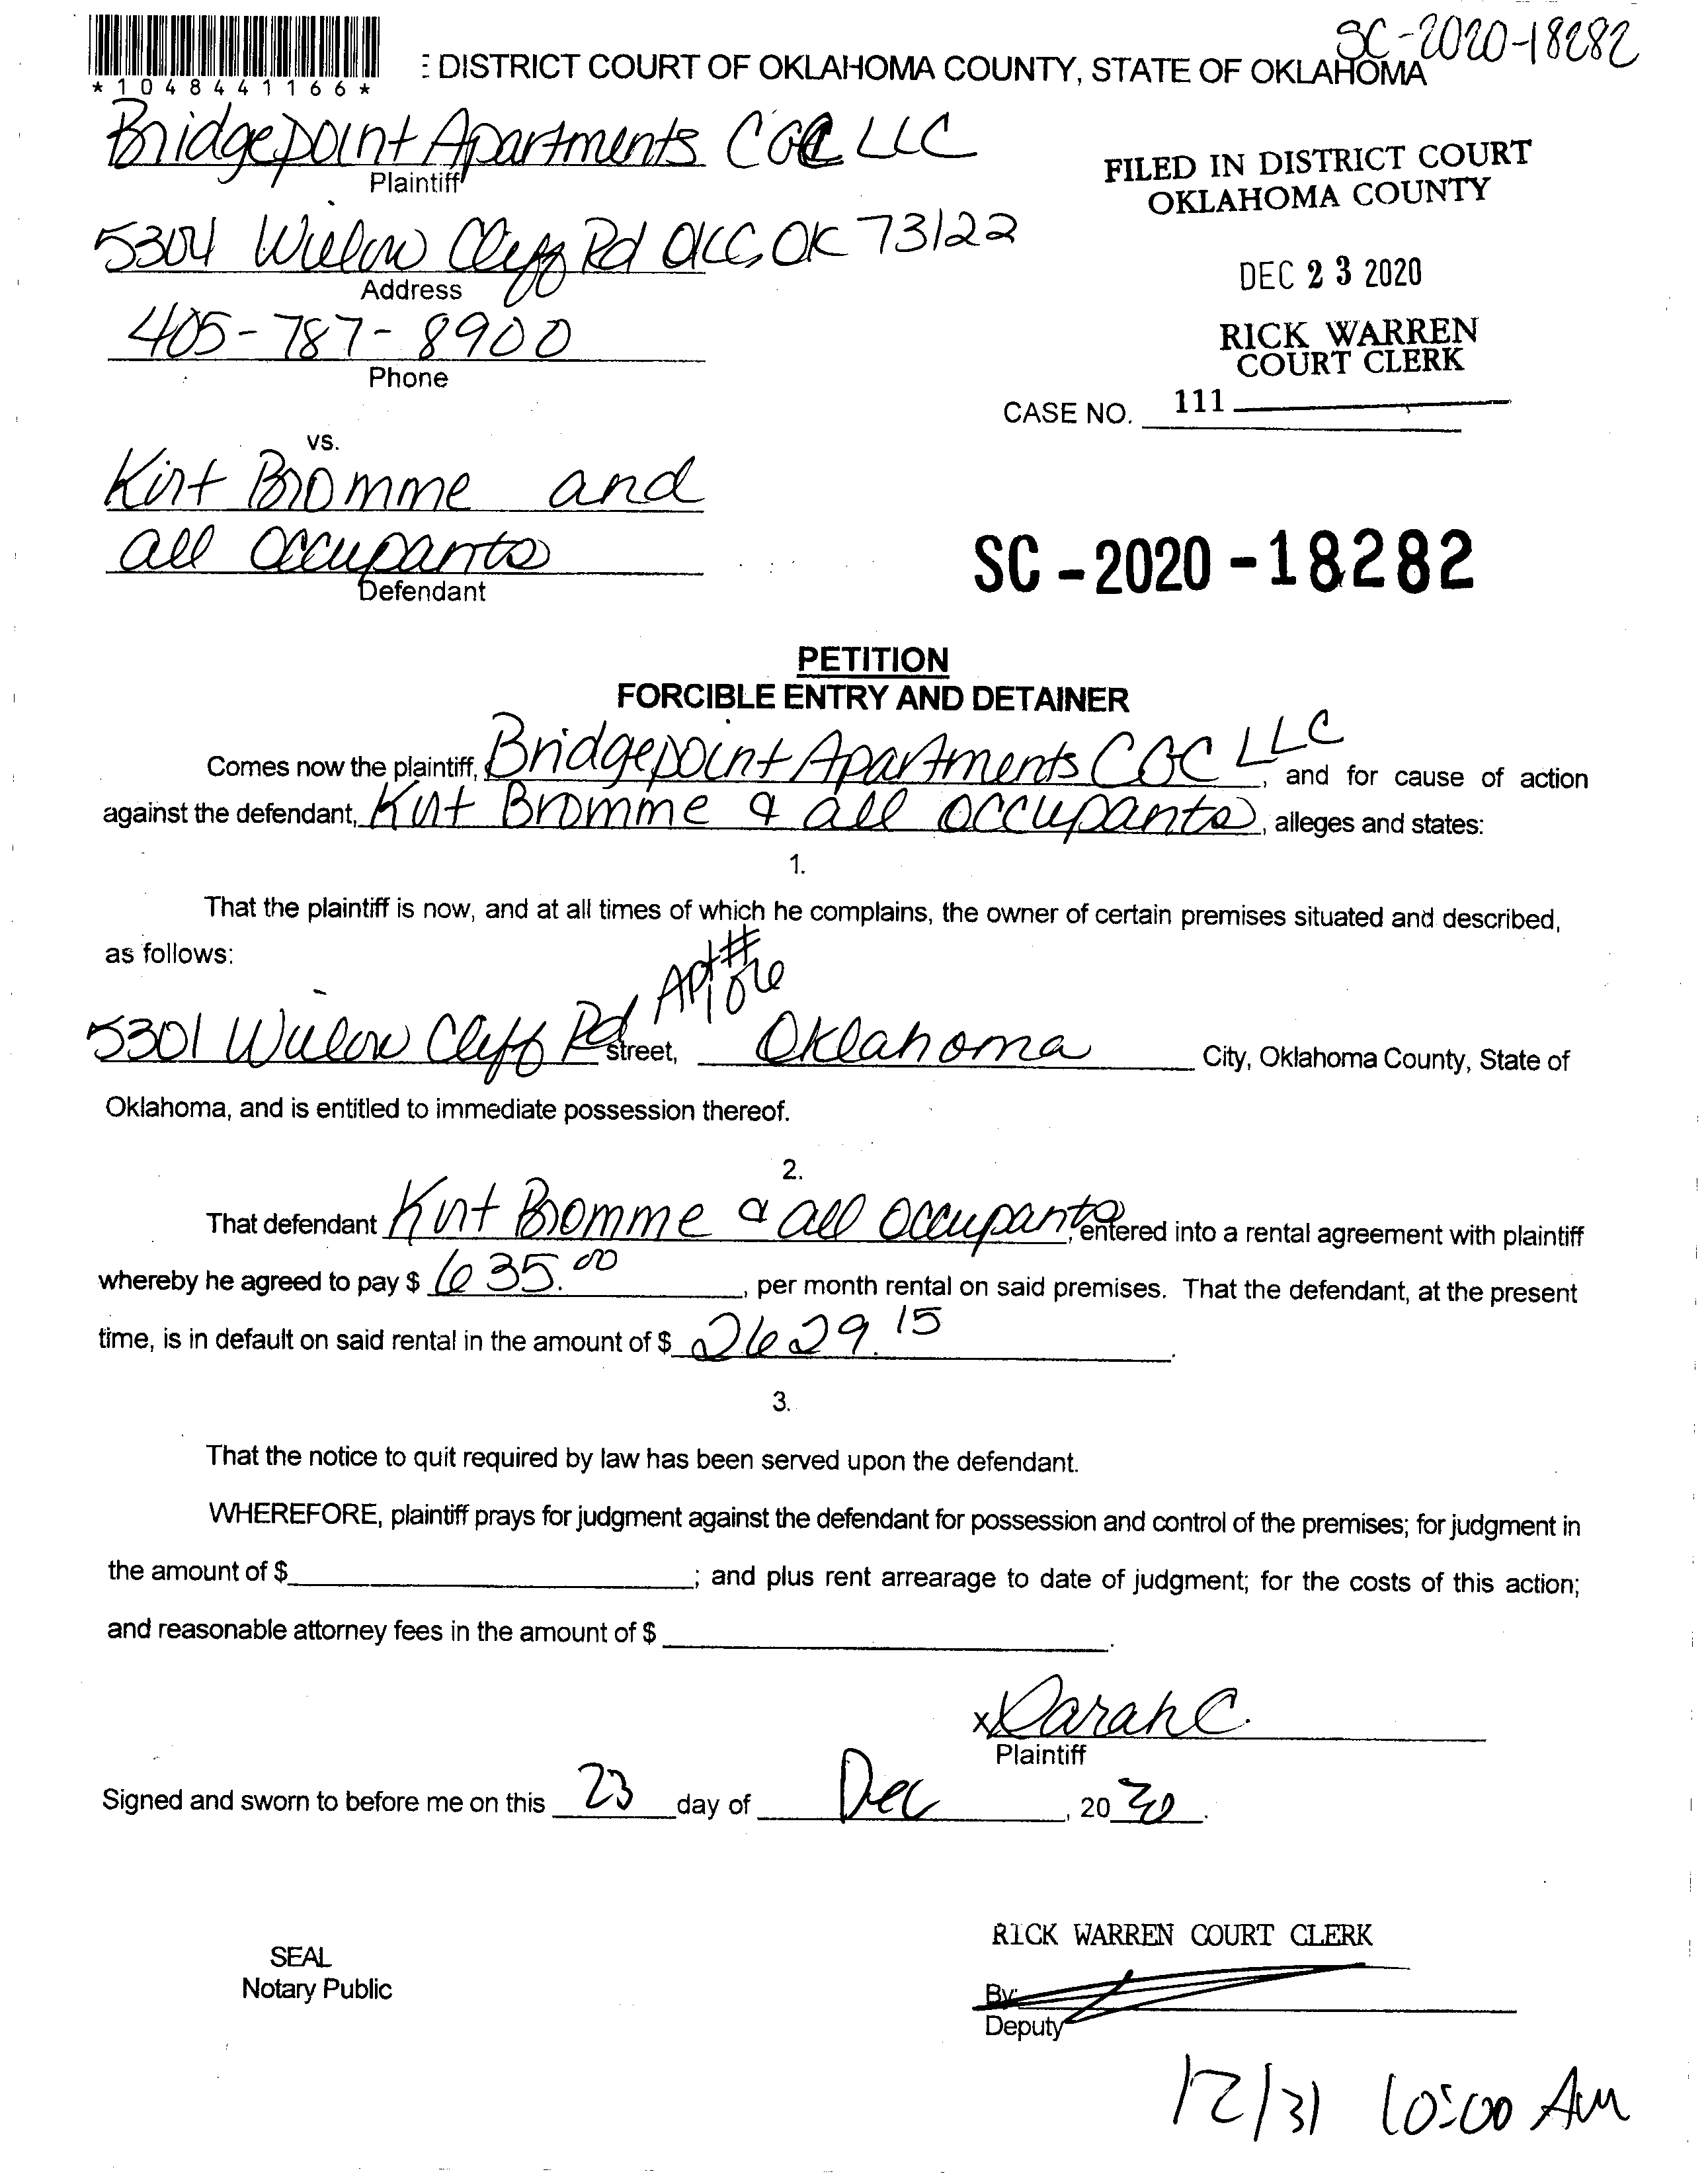 SC-2020-18282
*1048441166*
E DISTRICT COURT OF OKLAHOMA COUNTY, STATE OF OKLAHOMA
Bridgepoint Apartments COC LLC
Plaintiff
5304 Willow Cliff Rd OKC, OK 73122
Address
405-787-8900
Phone
FILED IN DISTRICT COURT
OKLAHOMA COUNTY
DEC 23 2020
RICK WARREN
COURT CLERK
CASE NO. 111
vs.
Kirt Bromme and
all occupants
Defendant
SC-2020-18282
PETITION
FORCIBLE ENTRY AND DETAINER
Comes now the plaintiff, Bridgepoint Apartments COC LLC, and for cause of action
against the defendant, Kirt Bromme & all occupants, alleges and states:
1.
That the plaintiff is now, and at all times of which he complains, the owner of certain premises situated and described,
as follows:
Apt #
5301 Willow Cliff Rd Street, Oklahoma City, Oklahoma County, State of
Oklahoma, and is entitled to immediate possession thereof.
2.
That defendant Kirt Bromme & all occupants, entered into a rental agreement with plaintiff
whereby he agreed to pay $ 635.00, per month rental on said premises. That the defendant, at the present
time, is in default on said rental in the amount of $ 2629.15.
3.
That the notice to quit required by law has been served upon the defendant.
WHEREFORE, plaintiff prays for judgment against the defendant for possession and control of the premises; for judgment in
the amount of $ ; and plus rent arrearage to date of judgment; for the costs of this action;
and reasonable attorney fees in the amount of $ .
x Sarah C.
Plaintiff
Signed and sworn to before me on this 23 day of Dec, 2020.
SEAL
Notary Public
RICK WARREN COURT CLERK
By:
Deputy
12/31 10:00 AM